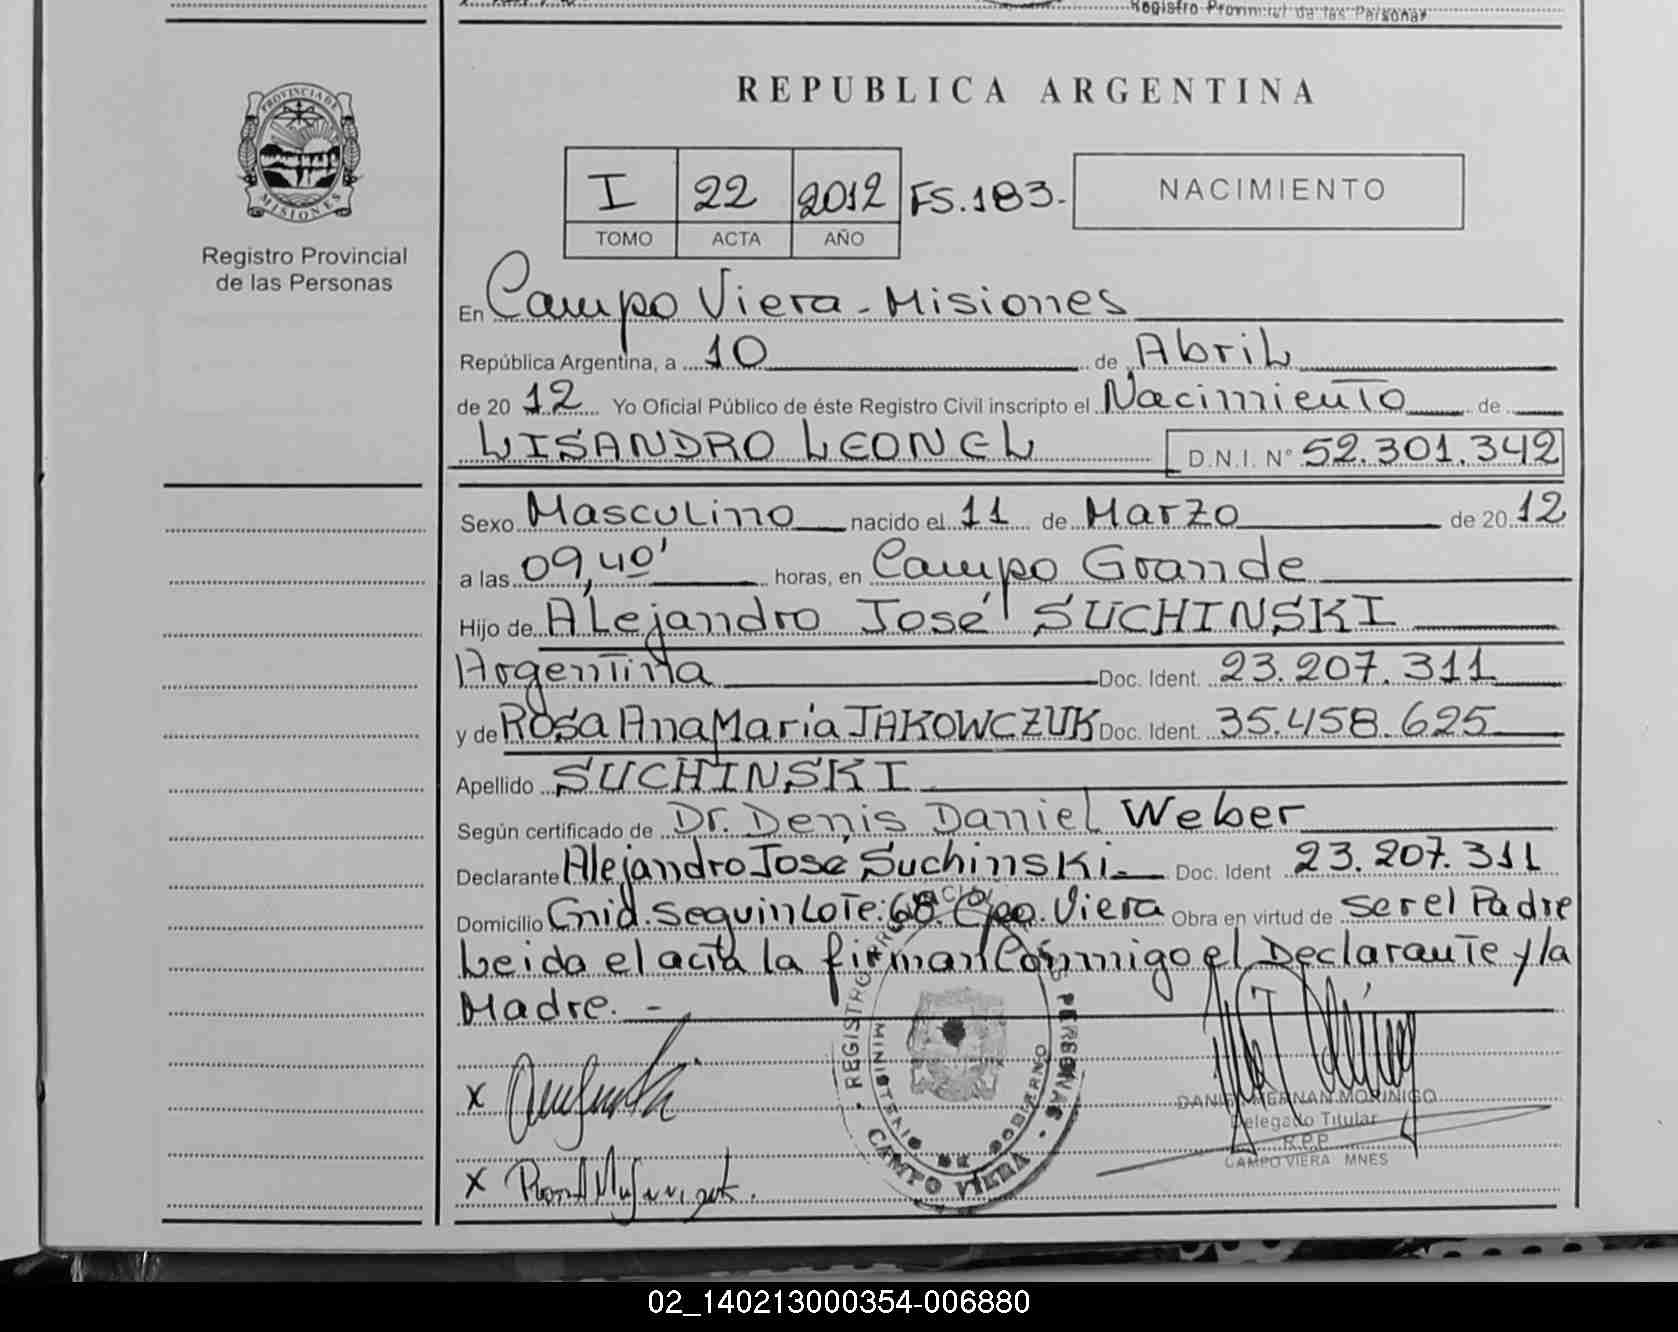 Registro Provincial de las Personas
PROVINCIA DE
MISIONES
Registro Provincial
de las Personas
REPUBLICA ARGENTINA
I 22 2012 FS.183.-
TOMO ACTA AÑO
NACIMIENTO
En Campo Viera - Misiones
República Argentina, a 10 de Abril
de 2012 Yo Oficial Público de éste Registro Civil inscripto el Nacimiento de
LISANDRO LEONEL D.N.I. N° 52.301.342
Sexo Masculino nacido el 11 de Marzo de 2012
a las 09,40' horas, en Campo Grande
Hijo de Alejandro José SUCHINSKI
Argentina Doc. Ident. 23.207.311
y de Rosa Ana María JAKOWCZUK Doc. Ident. 35.458.625
Apellido SUCHINSKI
Según certificado de Dr. Denis Daniel Weber
Declarante Alejandro José Suchinski.- Doc. Ident 23.207.311
Domicilio Cnid. Seguin Lote: 68. Cpo. Viera Obra en virtud de ser el Padre
Leida el acta la firman Conmigo el Declarante y la
Madre. -
x
x
REGISTRO PERSONAS
MINISTERIO DE GOBIERNO
CAMPO VIERA
HERNAN MORINIGO
Delegado Titular
R.P.P.
CAMPO VIERA MNES
02_140213000354-006880